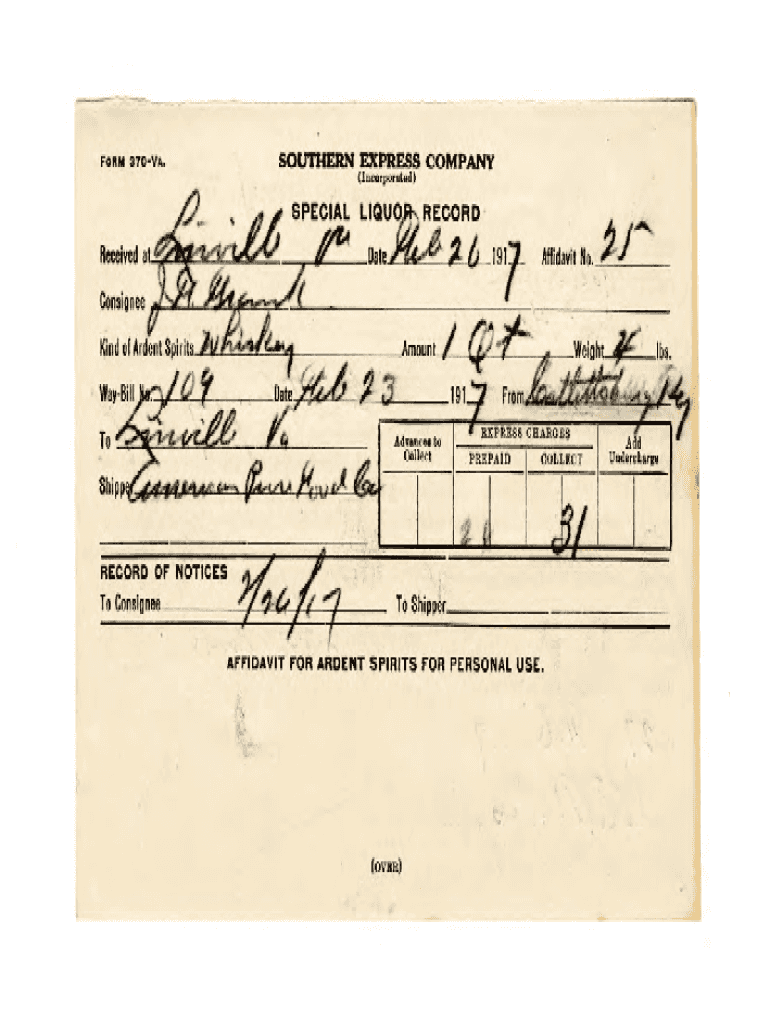 FORM 370-VA.
SOUTHERN EXPRESS COMPANY
(Incorporated)
SPECIAL LIQUOR RECORD
Received at Linvill Date Feb 26 1917 Affidavit No. 25
Consignee J.
Kind of Ardent Spirits Whiskey Amount 1 Qt Weight 4 lbs.
Way-Bill No. 109 Date Feb 23 1917 From Catlettsburg Ky
To Linvill Va
Advances to Collect EXPRESS CHARGES Add Undercharge
PREPAID COLLECT
Shipper American Pure Food Co
31
RECORD OF NOTICES
To Consignee 2/26/17 To Shipper
AFFIDAVIT FOR ARDENT SPIRITS FOR PERSONAL USE.
(OVER)